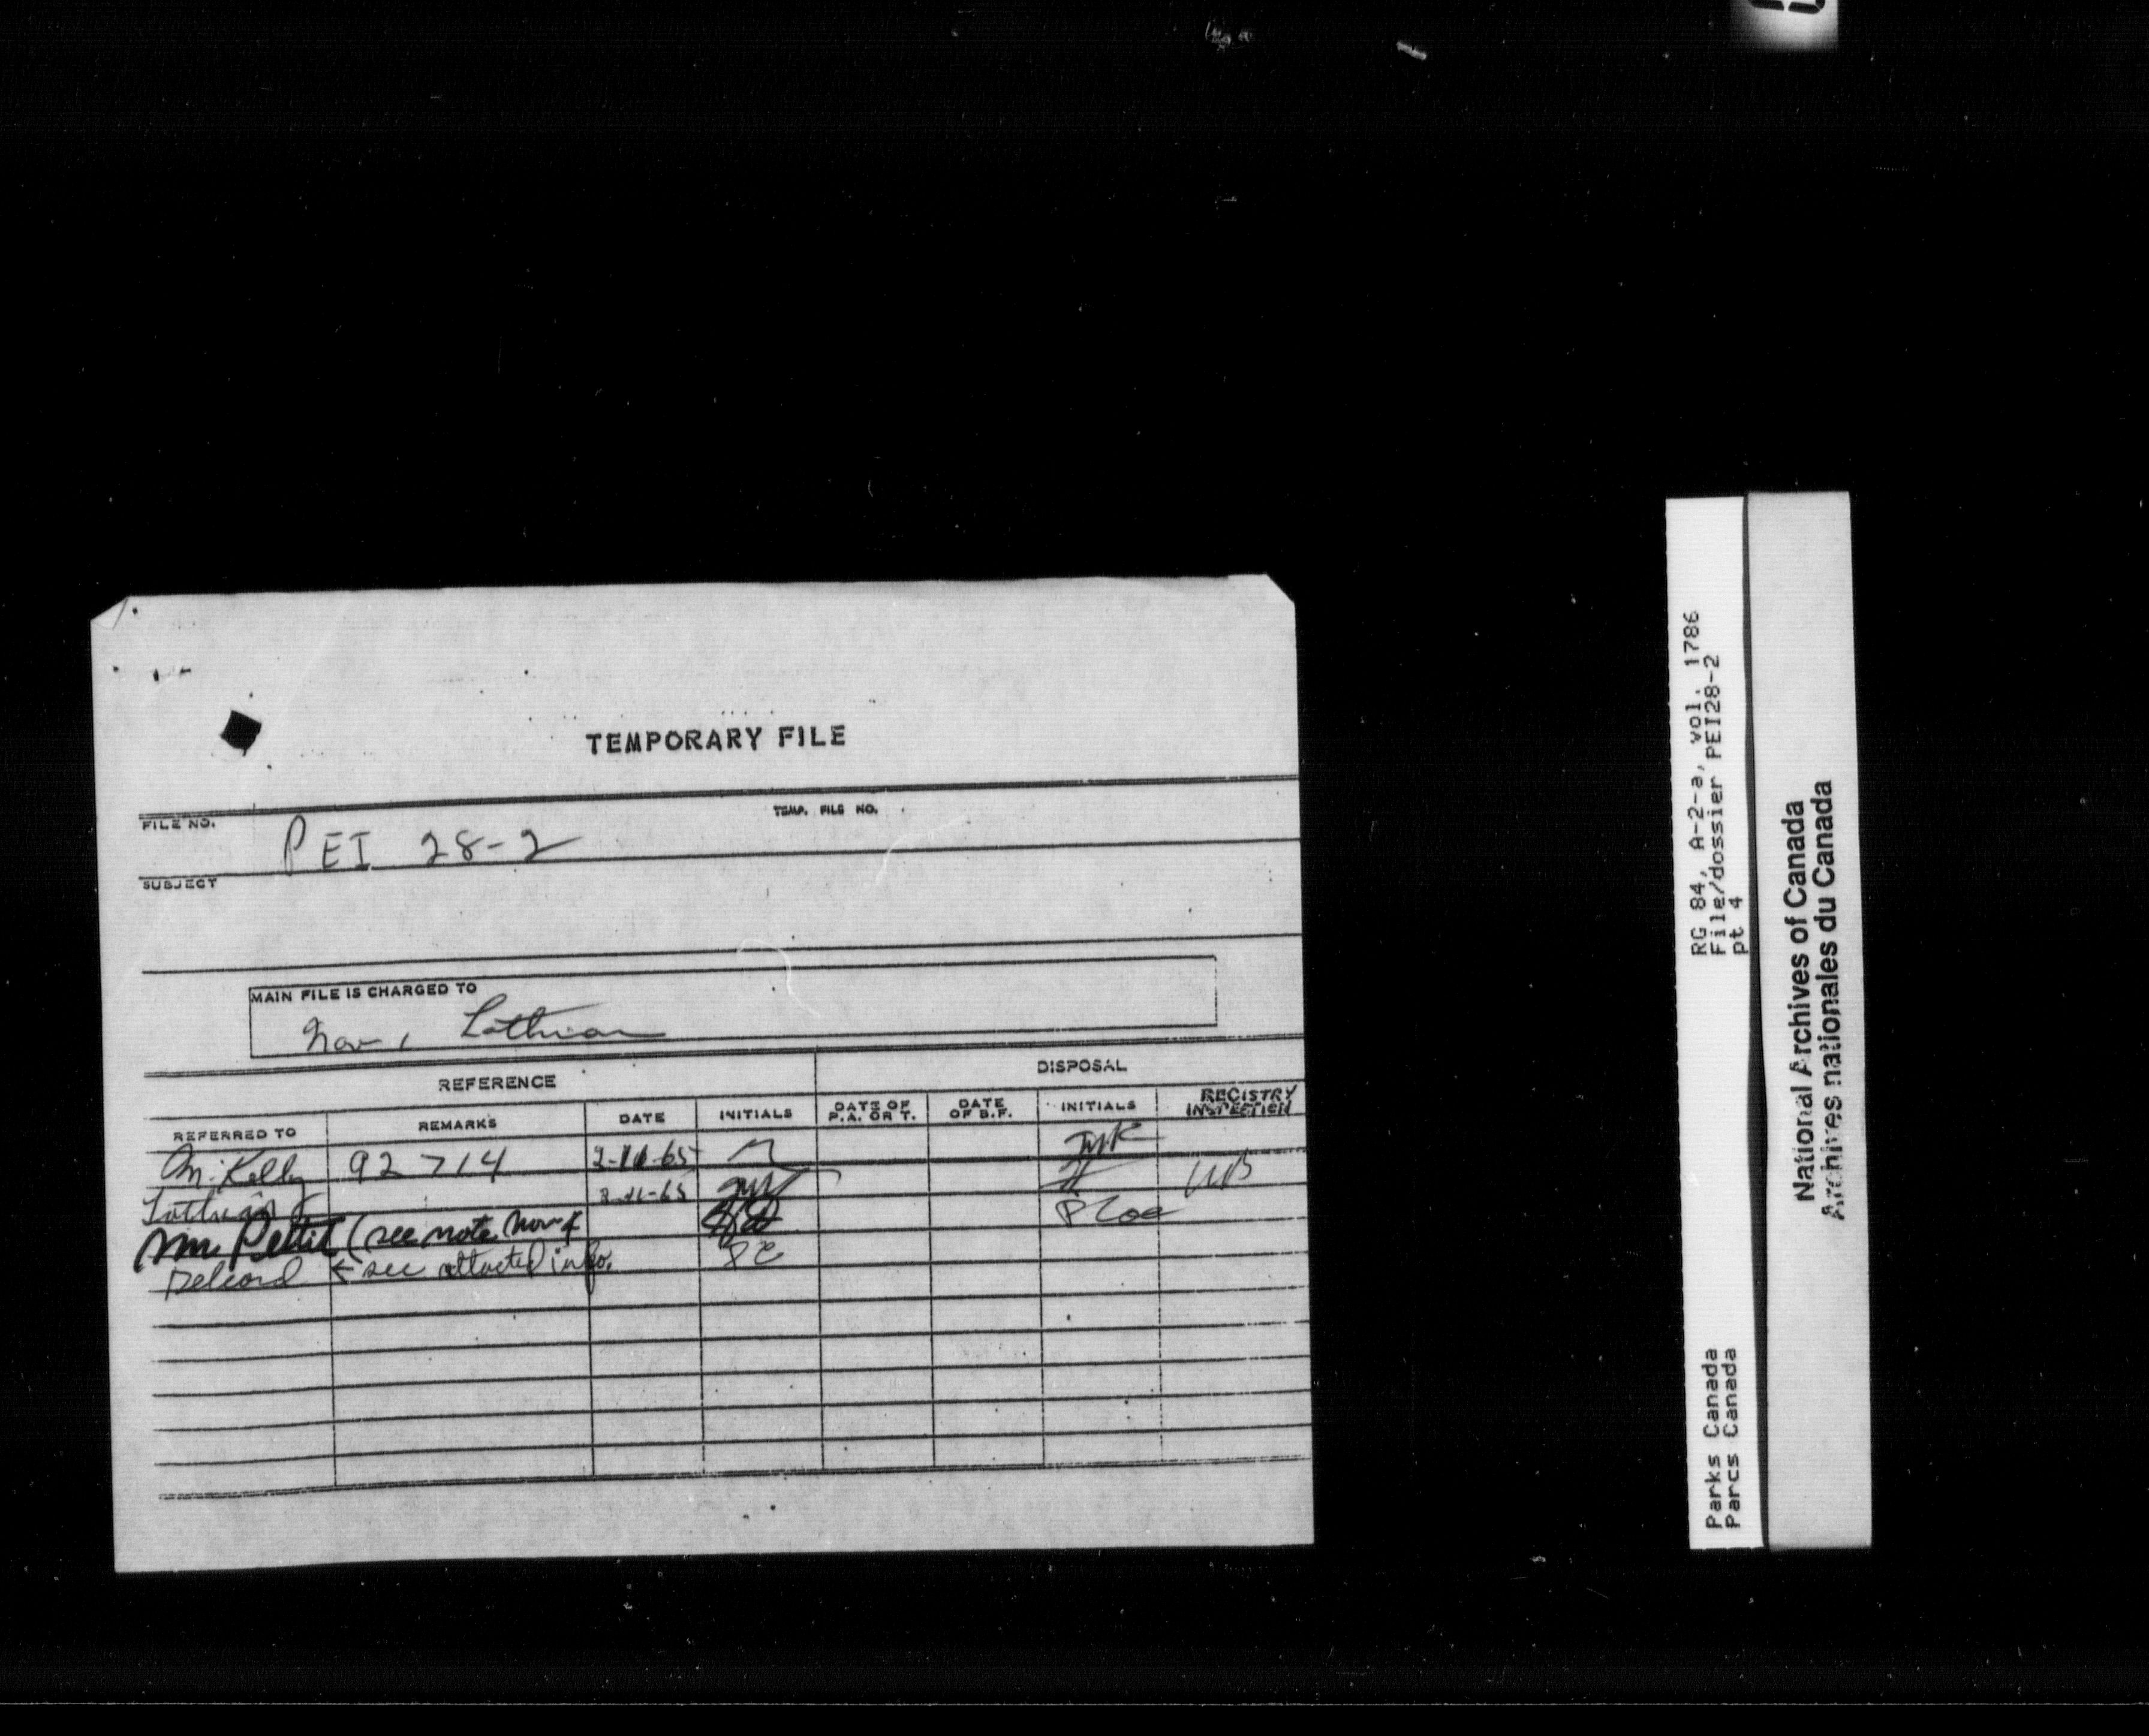 TEMPORARY FILE
FILE NO. TEMP. FILE NO.
PEI 28-2
SUBJECT
MAIN FILE IS CHARGED TO
Nov 1 Lothian
REFERENCE DISPOSAL
REFERRED TO REMARKS DATE INITIALS DATE OF P.A. OR T. DATE OF B.F. INITIALS REGISTRY INSPECTION
M. Kelly 92714 2-11-65
Lothian 2-11-65
Mr. Pettit (see note Nov 4
← see attached info.
RG 84, A-2-a, vol. 1786
File/dossier PEI28-2
pt 4
Parks Canada
Parcs Canada
National Archives of Canada
Archives nationales du Canada